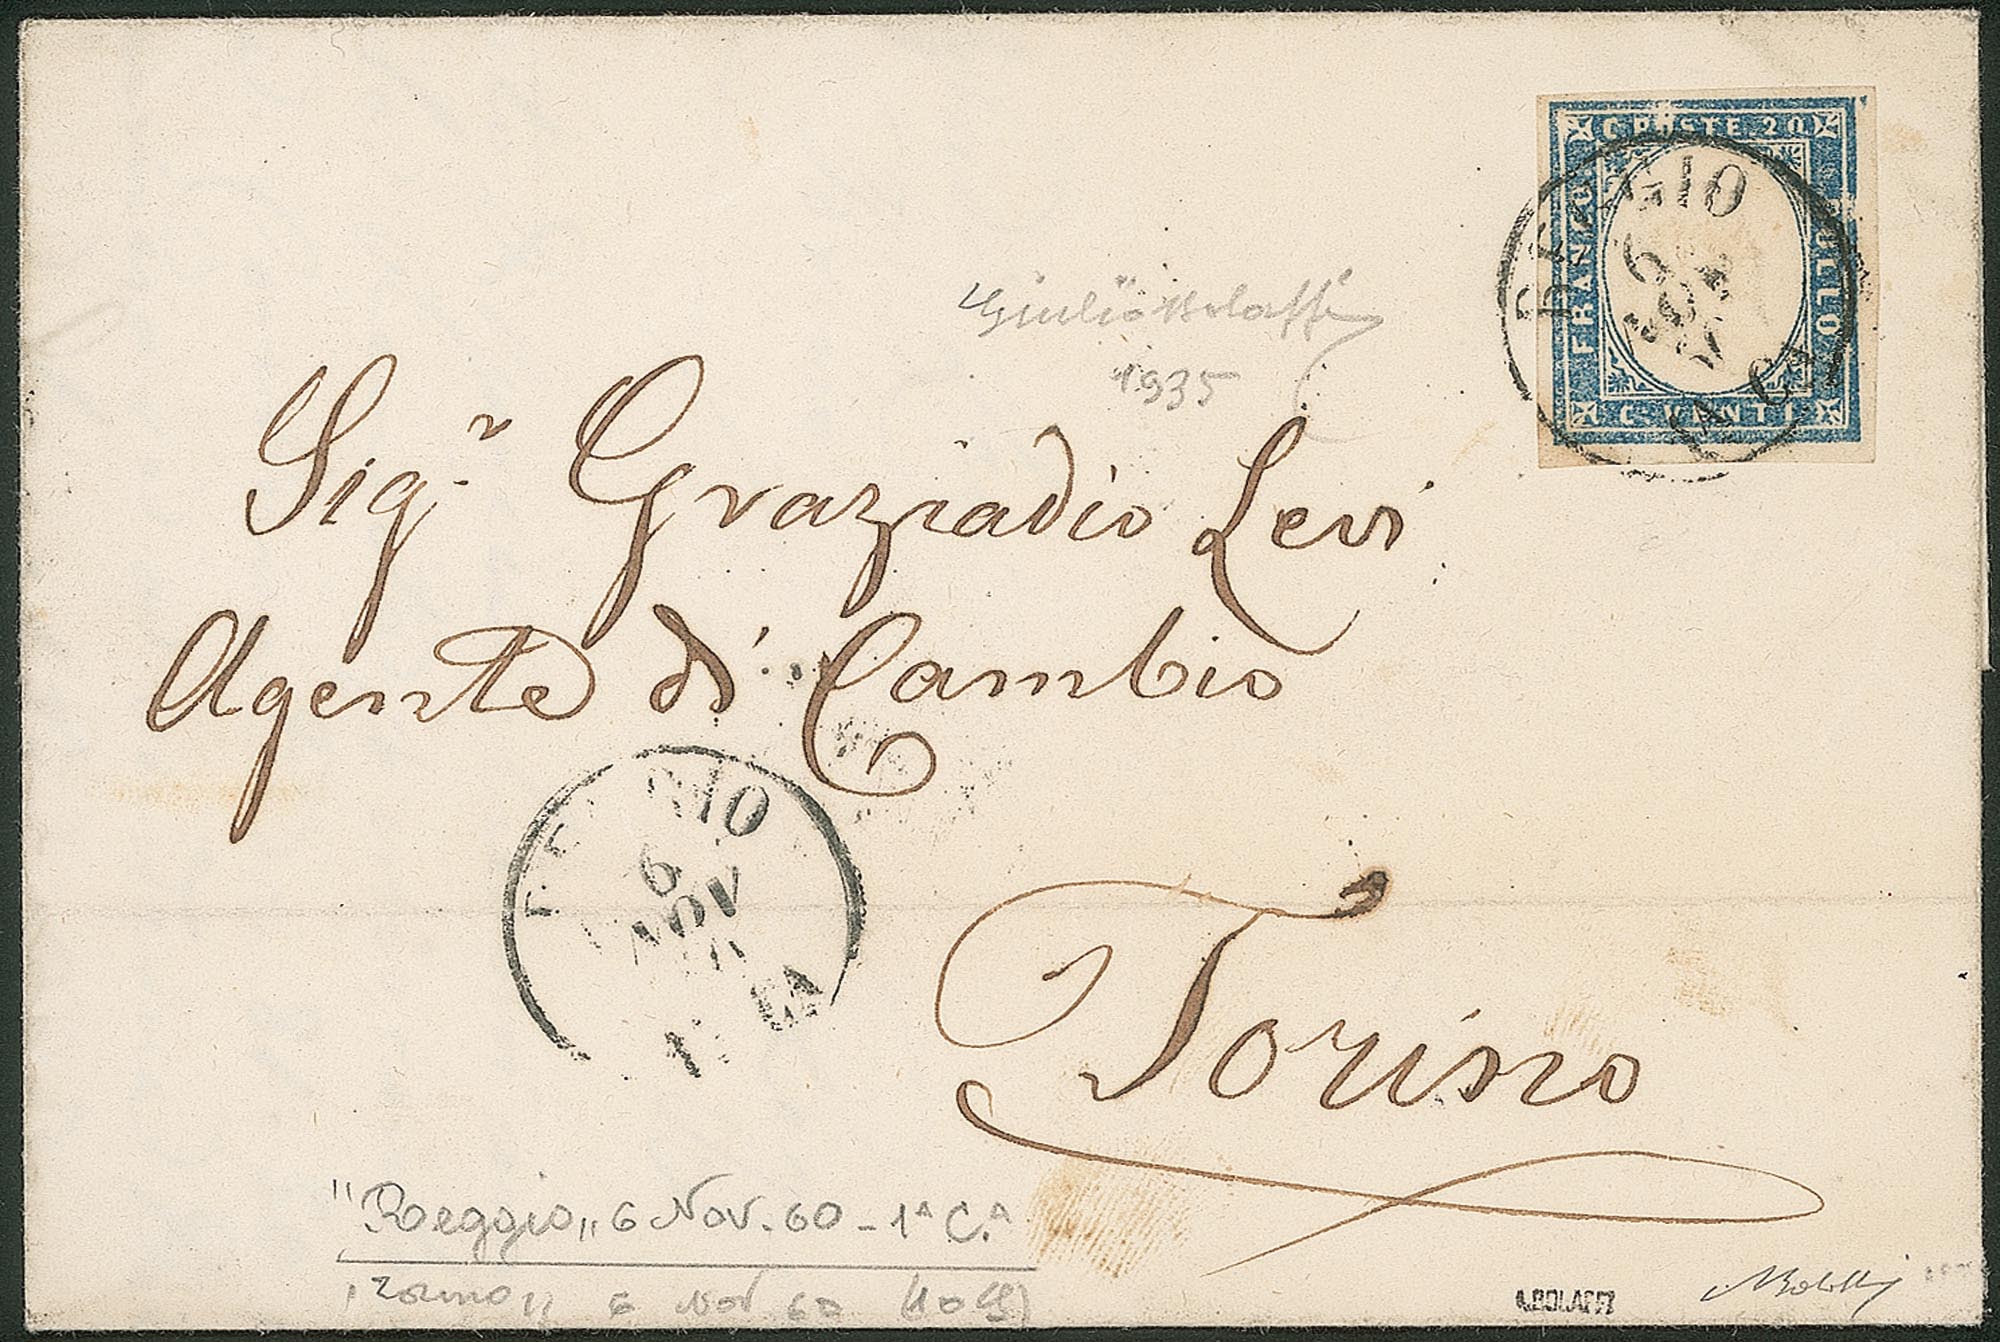 C. POSTE 20
FRANCO
BOLLO
C. VENTI
REGGIO
6
NOV
Giulio Bolaffi
1935
Sigr. Graziadio Levi
Agente di Cambio
REGGIO
6
NOV
Torino
"Reggio" 6 Nov. 60 - 1ª C.ª
Torino 6 Nov 60
A.BOLAFFI